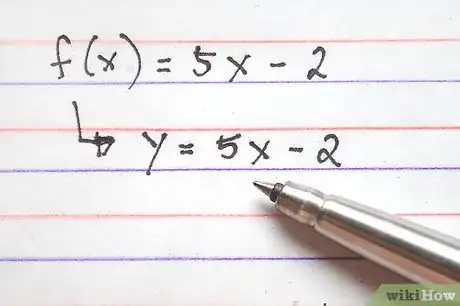 f(x) = 5x - 2
↳ y = 5x - 2
wikiHow